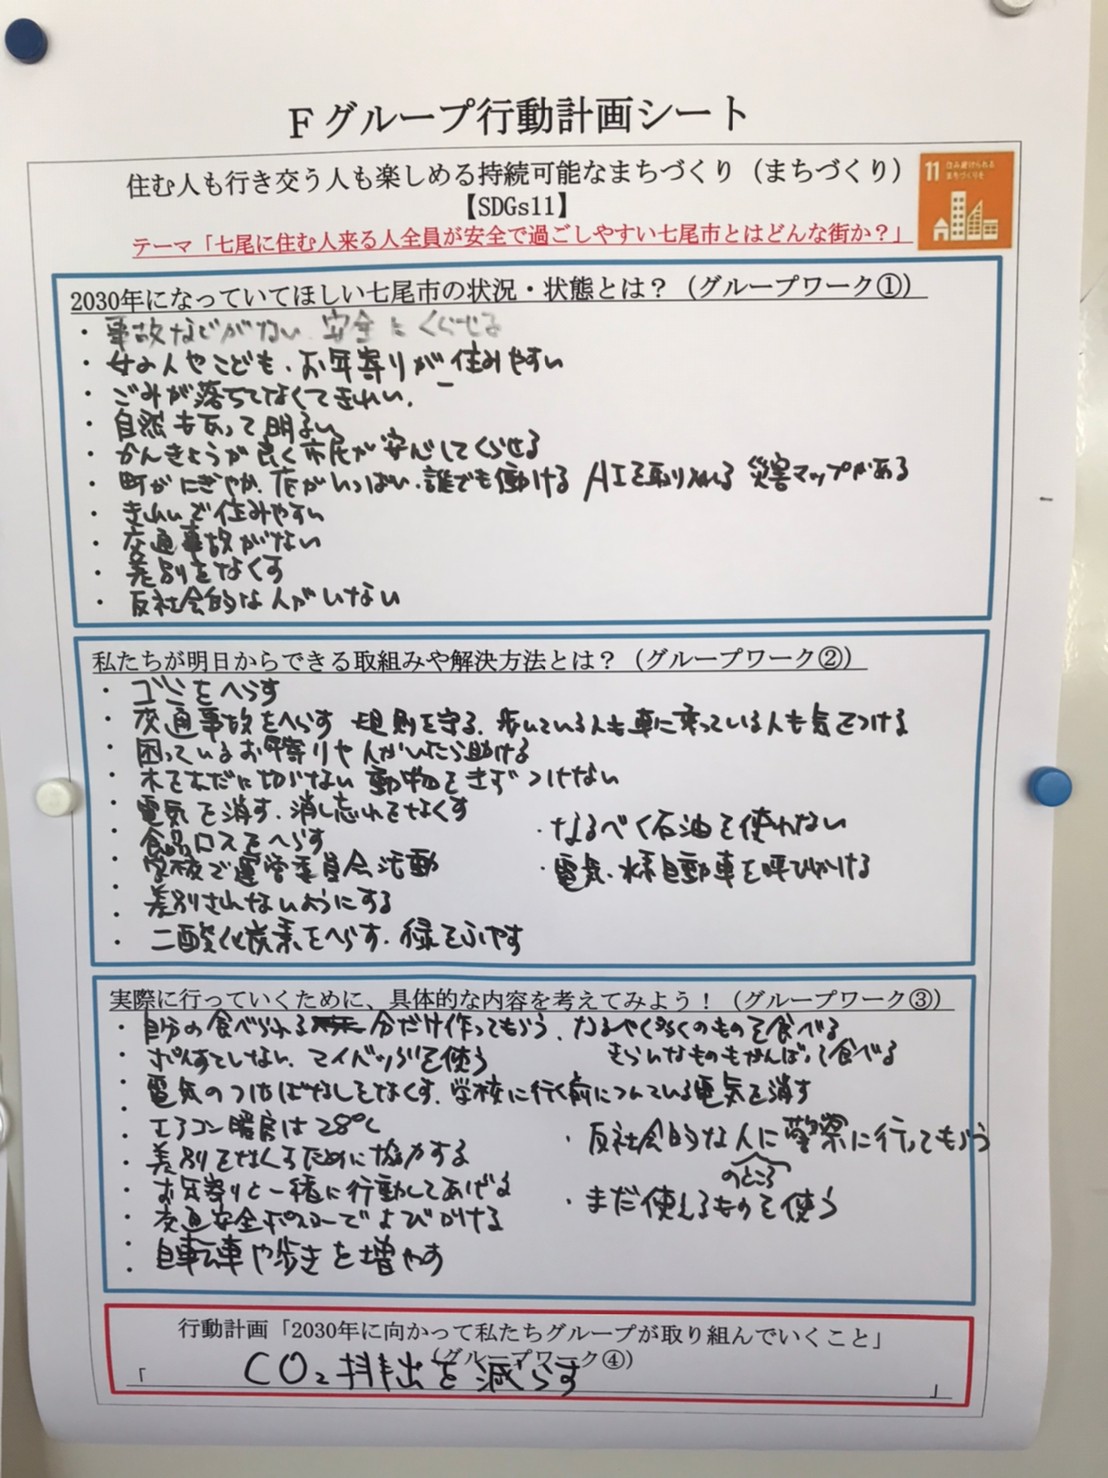 Fグループ行動計画シート
住む人も行き交う人も楽しめる持続可能なまちづくり（まちづくり）
【SDGs11】
11 住み続けられる
まちづくりを
テーマ「七尾に住む人来る人全員が安全で過ごしやすい七尾市とはどんな街か？」
2030年になっていてほしい七尾市の状況・状態とは？（グループワーク①）
・事故などがない、安全にくらせる
・女の人やこども、お年寄りが住みやすい
・ごみが落ちてなくてきれい、
・自然もあって明るい
・かんきょうが良く市民が安心してくらせる
・町がにぎやか、店がいっぱい、誰でも働ける AIを取り入れる 災害マップがある
・きれいで住みやすい
・交通事故がない
・差別をなくす
・反社会的な人がいない
私たちが明日からできる取組みや解決方法とは？（グループワーク②）
・ゴミをへらす
・交通事故をへらす 規則を守る、歩いている人も車に乗っている人も気をつける
・困っているお年寄りや人がいたら助ける
・木をむだに切らない 動物をきずつけない
・電気を消す、消し忘れをなくす
・食品ロスをへらす
・なるべく石油を使わない
・学校で運営委員会活動
・電気、水素自動車を呼びかける
・差別されないようにする
・二酸化炭素をへらす、緑をふやす
実際に行っていくために、具体的な内容を考えてみよう！（グループワーク③）
・自分の食べられる分だけ作ってもらう、なるべく多くのものを食べる
きらいなものもがんばって食べる
・ポイすてしない、マイバッグを使う
・電気のつけっぱなしをなくす、学校に行く前についている電気を消す
・エアコン暖房は28℃
・反社会的な人に警察に行ってもらう
のところ
・差別をなくすために協力する
・お年寄りと一緒に行動してあげる
・まだ使えるものを使う
・交通安全ポスターでよびかける
・自転車や歩きを増やす
行動計画「2030年に向かって私たちグループが取り組んでいくこと」
（グループワーク④）
「CO₂排出を減らす」